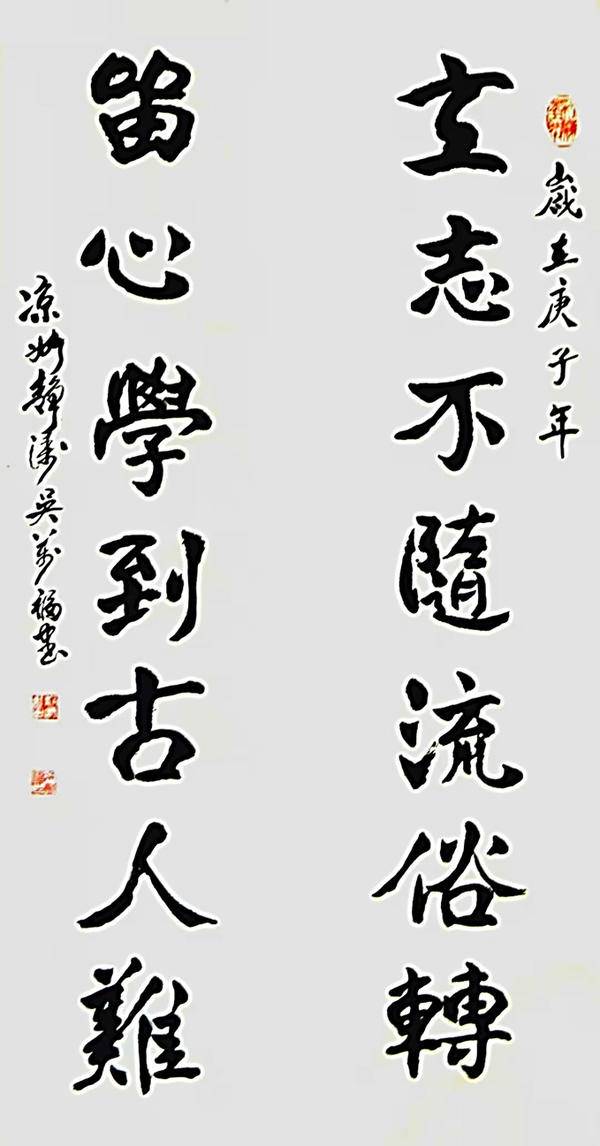 歲在庚子年
立志不隨流俗轉
留心學到古人難
凉州靜濤吳萬福書